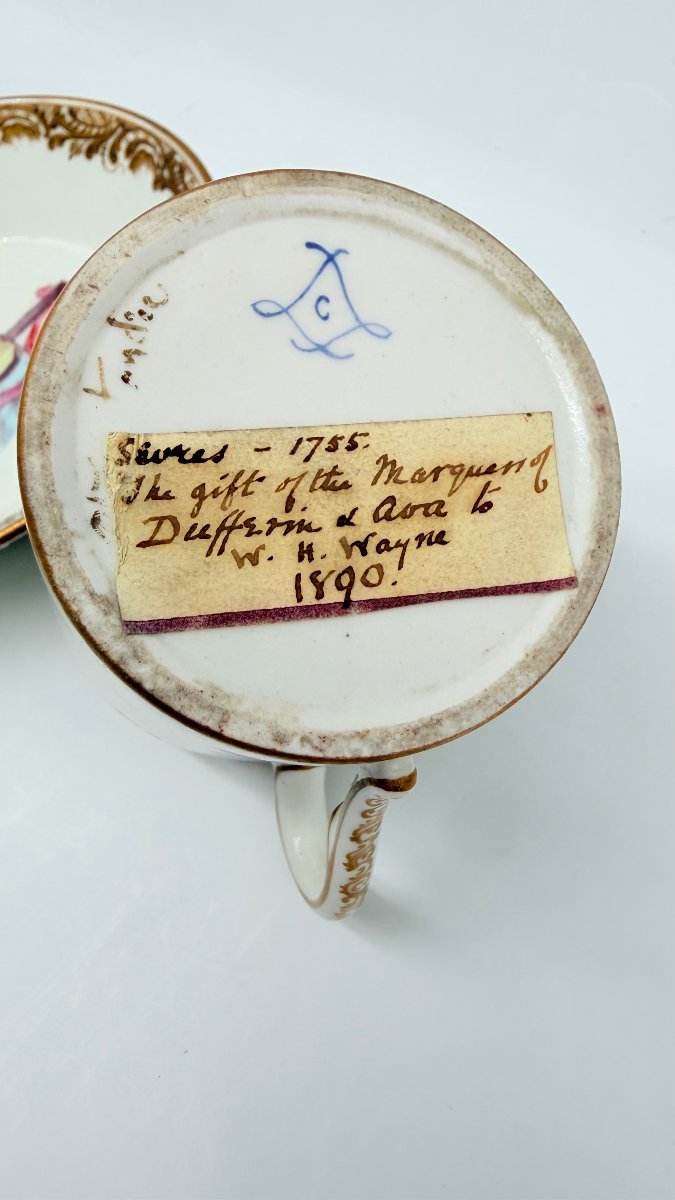 C
Sèvres - 1755.
The gift of the Marquess of
Dufferin & Ava to
W. H. Wayne
1890.